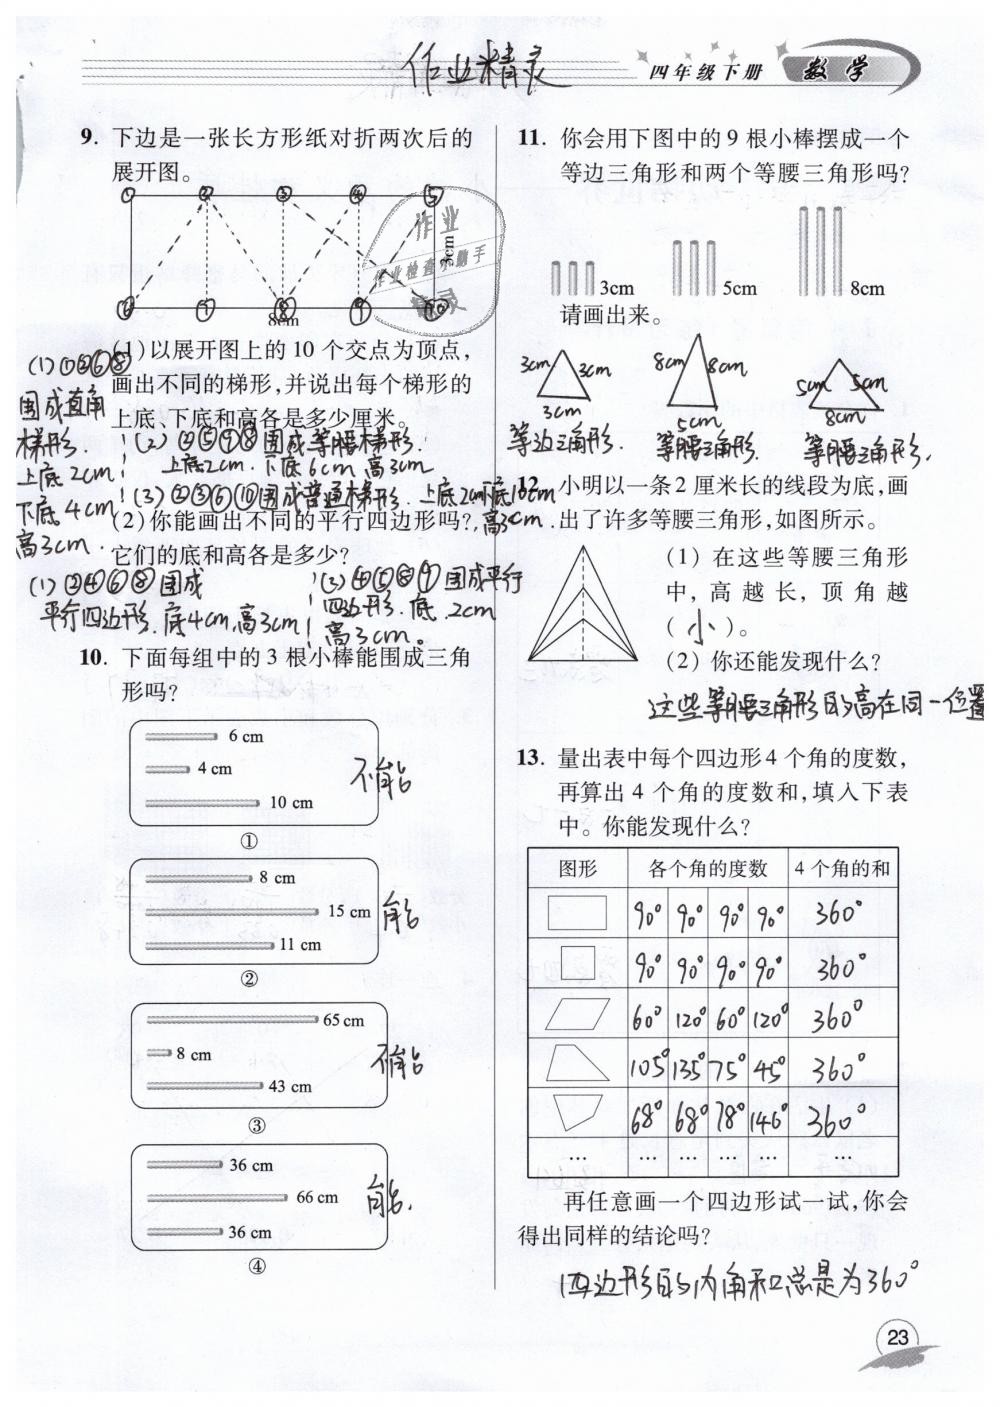 作业精灵
四年级下册 数学
9. 下边是一张长方形纸对折两次后的
展开图。
① ② ③ ④ ⑤
3cm
作业
作业检查小助手
精灵
⑥ ⑦ ⑧ ⑨ ⑩
8cm
(1)以展开图上的 10 个交点为顶点，
画出不同的梯形，并说出每个梯形的
上底、下底和高各是多少厘米。
(1)①②⑥⑧
围成直角
梯形.
上底 2cm
下底 4cm
高3cm.
(2) ②⑤⑨⑧围成等腰梯形.
上底2cm. 下底 6cm 高3cm
(3) ②③⑥⑩围成普通梯形. 上底2cm下底10cm
高3cm.
(2)你能画出不同的平行四边形吗？
它们的底和高各是多少？
(1) ②④⑥⑧ 围成
平行四边形. 底4cm,高3cm
(2) ④⑤⑧⑨围成平行
四边形. 底 2cm
高3cm。
10. 下面每组中的 3 根小棒能围成三角
形吗？
6 cm
4 cm
10 cm
不能
①
8 cm
15 cm
11 cm
能
②
65 cm
8 cm
43 cm
不能
③
36 cm
66 cm
36 cm
能.
④
11. 你会用下图中的 9 根小棒摆成一个
等边三角形和两个等腰三角形吗？
3cm 5cm 8cm
请画出来。
3cm 3cm
3cm
等边三角形.
8cm 8cm
5cm
等腰三角形.
5cm 5cm
8cm
等腰三角形.
12. 小明以一条 2 厘米长的线段为底，画
出了许多等腰三角形，如图所示。
(1) 在这些等腰三角形
中，高越长，顶角越
( 小 )。
(2) 你还能发现什么？
这些等腰三角形的高在同一位置
13. 量出表中每个四边形 4 个角的度数，
再算出 4 个角的度数和，填入下表
中。你能发现什么？
图形 各个角的度数 4 个角的和
90° 90° 90° 90° 360°
90° 90° 90° 90° 360°
60° 120° 60° 120° 360°
105° 135° 75° 45° 360°
68° 68° 78° 146° 360°
… … … … … …
再任意画一个四边形试一试，你会
得出同样的结论吗？
四边形的内角和总是为360°
23